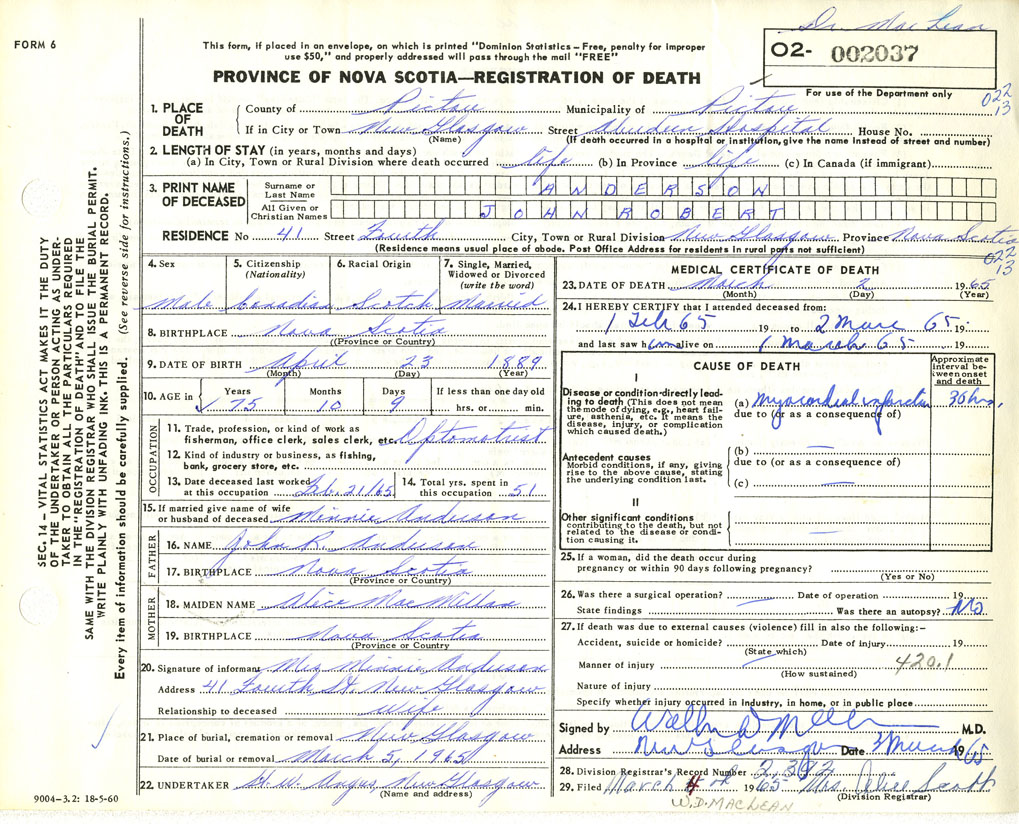 Dr. MacLean
FORM 6
This form, if placed in an envelope, on which is printed "Dominion Statistics – Free, penalty for improper
use $50," and properly addressed will pass through the mail "FREE"
02- 002037
PROVINCE OF NOVA SCOTIA—REGISTRATION OF DEATH
For use of the Department only
022
13
1. PLACE OF DEATH
County of Pictou Municipality of Pictou
If in City or Town New Glasgow Street Aberdeen Hospital House No.
(Name) (If death occurred in a hospital or institution, give the name instead of street and number)
2. LENGTH OF STAY (in years, months and days)
(a) In City, Town or Rural Division where death occurred life (b) In Province life (c) In Canada (if immigrant)
3. PRINT NAME OF DECEASED
Surname or Last Name ANDERSON
All Given or Christian Names JOHN ROBERT
RESIDENCE No 41 Street Fourth City, Town or Rural Division New Glasgow Province Nova Scotia
(Residence means usual place of abode. Post Office Address for residents in rural parts not sufficient)
022
13
SEC. 14 – VITAL STATISTICS ACT MAKES IT THE DUTY
OF THE UNDERTAKER OR PERSON ACTING AS UNDER-
TAKER TO OBTAIN ALL THE PARTICULARS REQUIRED
IN THE "REGISTRATION OF DEATH" AND TO FILE THE
SAME WITH THE DIVISION REGISTRAR WHO SHALL ISSUE THE BURIAL PERMIT.
WRITE PLAINLY WITH UNFADING INK. THIS IS A PERMANENT RECORD.
Every item of information should be carefully supplied. (See reverse side for instructions.)
4. Sex
Male
5. Citizenship
(Nationality)
Canadian
6. Racial Origin
Scotch
7. Single, Married,
Widowed or Divorced
(write the word)
Married
8. BIRTHPLACE Nova Scotia
(Province or Country)
9. DATE OF BIRTH April 23 1889
(Month) (Day) (Year)
10. AGE in Years 75 Months 10 Days 9 If less than one day old
hrs. or min.
OCCUPATION
11. Trade, profession, or kind of work as
fisherman, office clerk, sales clerk, etc. Optometrist
12. Kind of industry or business, as fishing,
bank, grocery store, etc.
13. Date deceased last worked
at this occupation Feb. 21/65
14. Total yrs. spent in
this occupation 51
15. If married give name of wife
or husband of deceased Minnie Anderson
FATHER
16. NAME John R. Anderson
17. BIRTHPLACE Nova Scotia
(Province or Country)
MOTHER
18. MAIDEN NAME Alice MacMillan
19. BIRTHPLACE Nova Scotia
(Province or Country
20. Signature of informant Mrs Minnie Anderson
Address 41 Fourth St. New Glasgow
Relationship to deceased Wife
21. Place of burial, cremation or removal New Glasgow
Date of burial or removal March 5, 1965
22. UNDERTAKER H. W. Angus New Glasgow
(Name and address)
9004–3.2: 18-5-60
MEDICAL CERTIFICATE OF DEATH
23. DATE OF DEATH March 2 1965
(Month) (Day)
24. I HEREBY CERTIFY that I attended deceased from:
1 Feb 65 19 to 2 Marc 65 19
and last saw him alive on 1 March 65 19
CAUSE OF DEATH
Approximate
interval be-
tween onset
and death
I
Disease or condition directly lead-
ing to death (This does not mean
the mode of dying, e.g., heart fail-
ure, asthenia, etc. It means the
disease, injury, or complication
which caused death.)
(a) myocardial infarction 36 hrs.
due to (or as a consequence of)
Antecedent causes
Morbid conditions, if any, giving
rise to the above cause, stating
the underlying condition last.
(b) —
due to (or as a consequence of)
(c) —
II
Other significant conditions
contributing to the death, but not
related to the disease or condi-
tion causing it.
—
25. If a woman, did the death occur during
pregnancy or within 90 days following pregnancy?
(Yes or No)
26. Was there a surgical operation? — Date of operation 19
State findings Was there an autopsy? No
27. If death was due to external causes (violence) fill in also the following:–
Accident, suicide or homicide? Date of injury 19
(State which)
Manner of injury — 420.1
(How sustained)
Nature of injury
Specify whether injury occurred in industry, in home, or in public place
Signed by M.D.
Address New Glasgow Date 3 March 1965
28. Division Registrar's Record Number 2,392
29. Filed March 4 1965 Mrs. Alice Scott
(Division Registrar)
W.D. MACLEAN